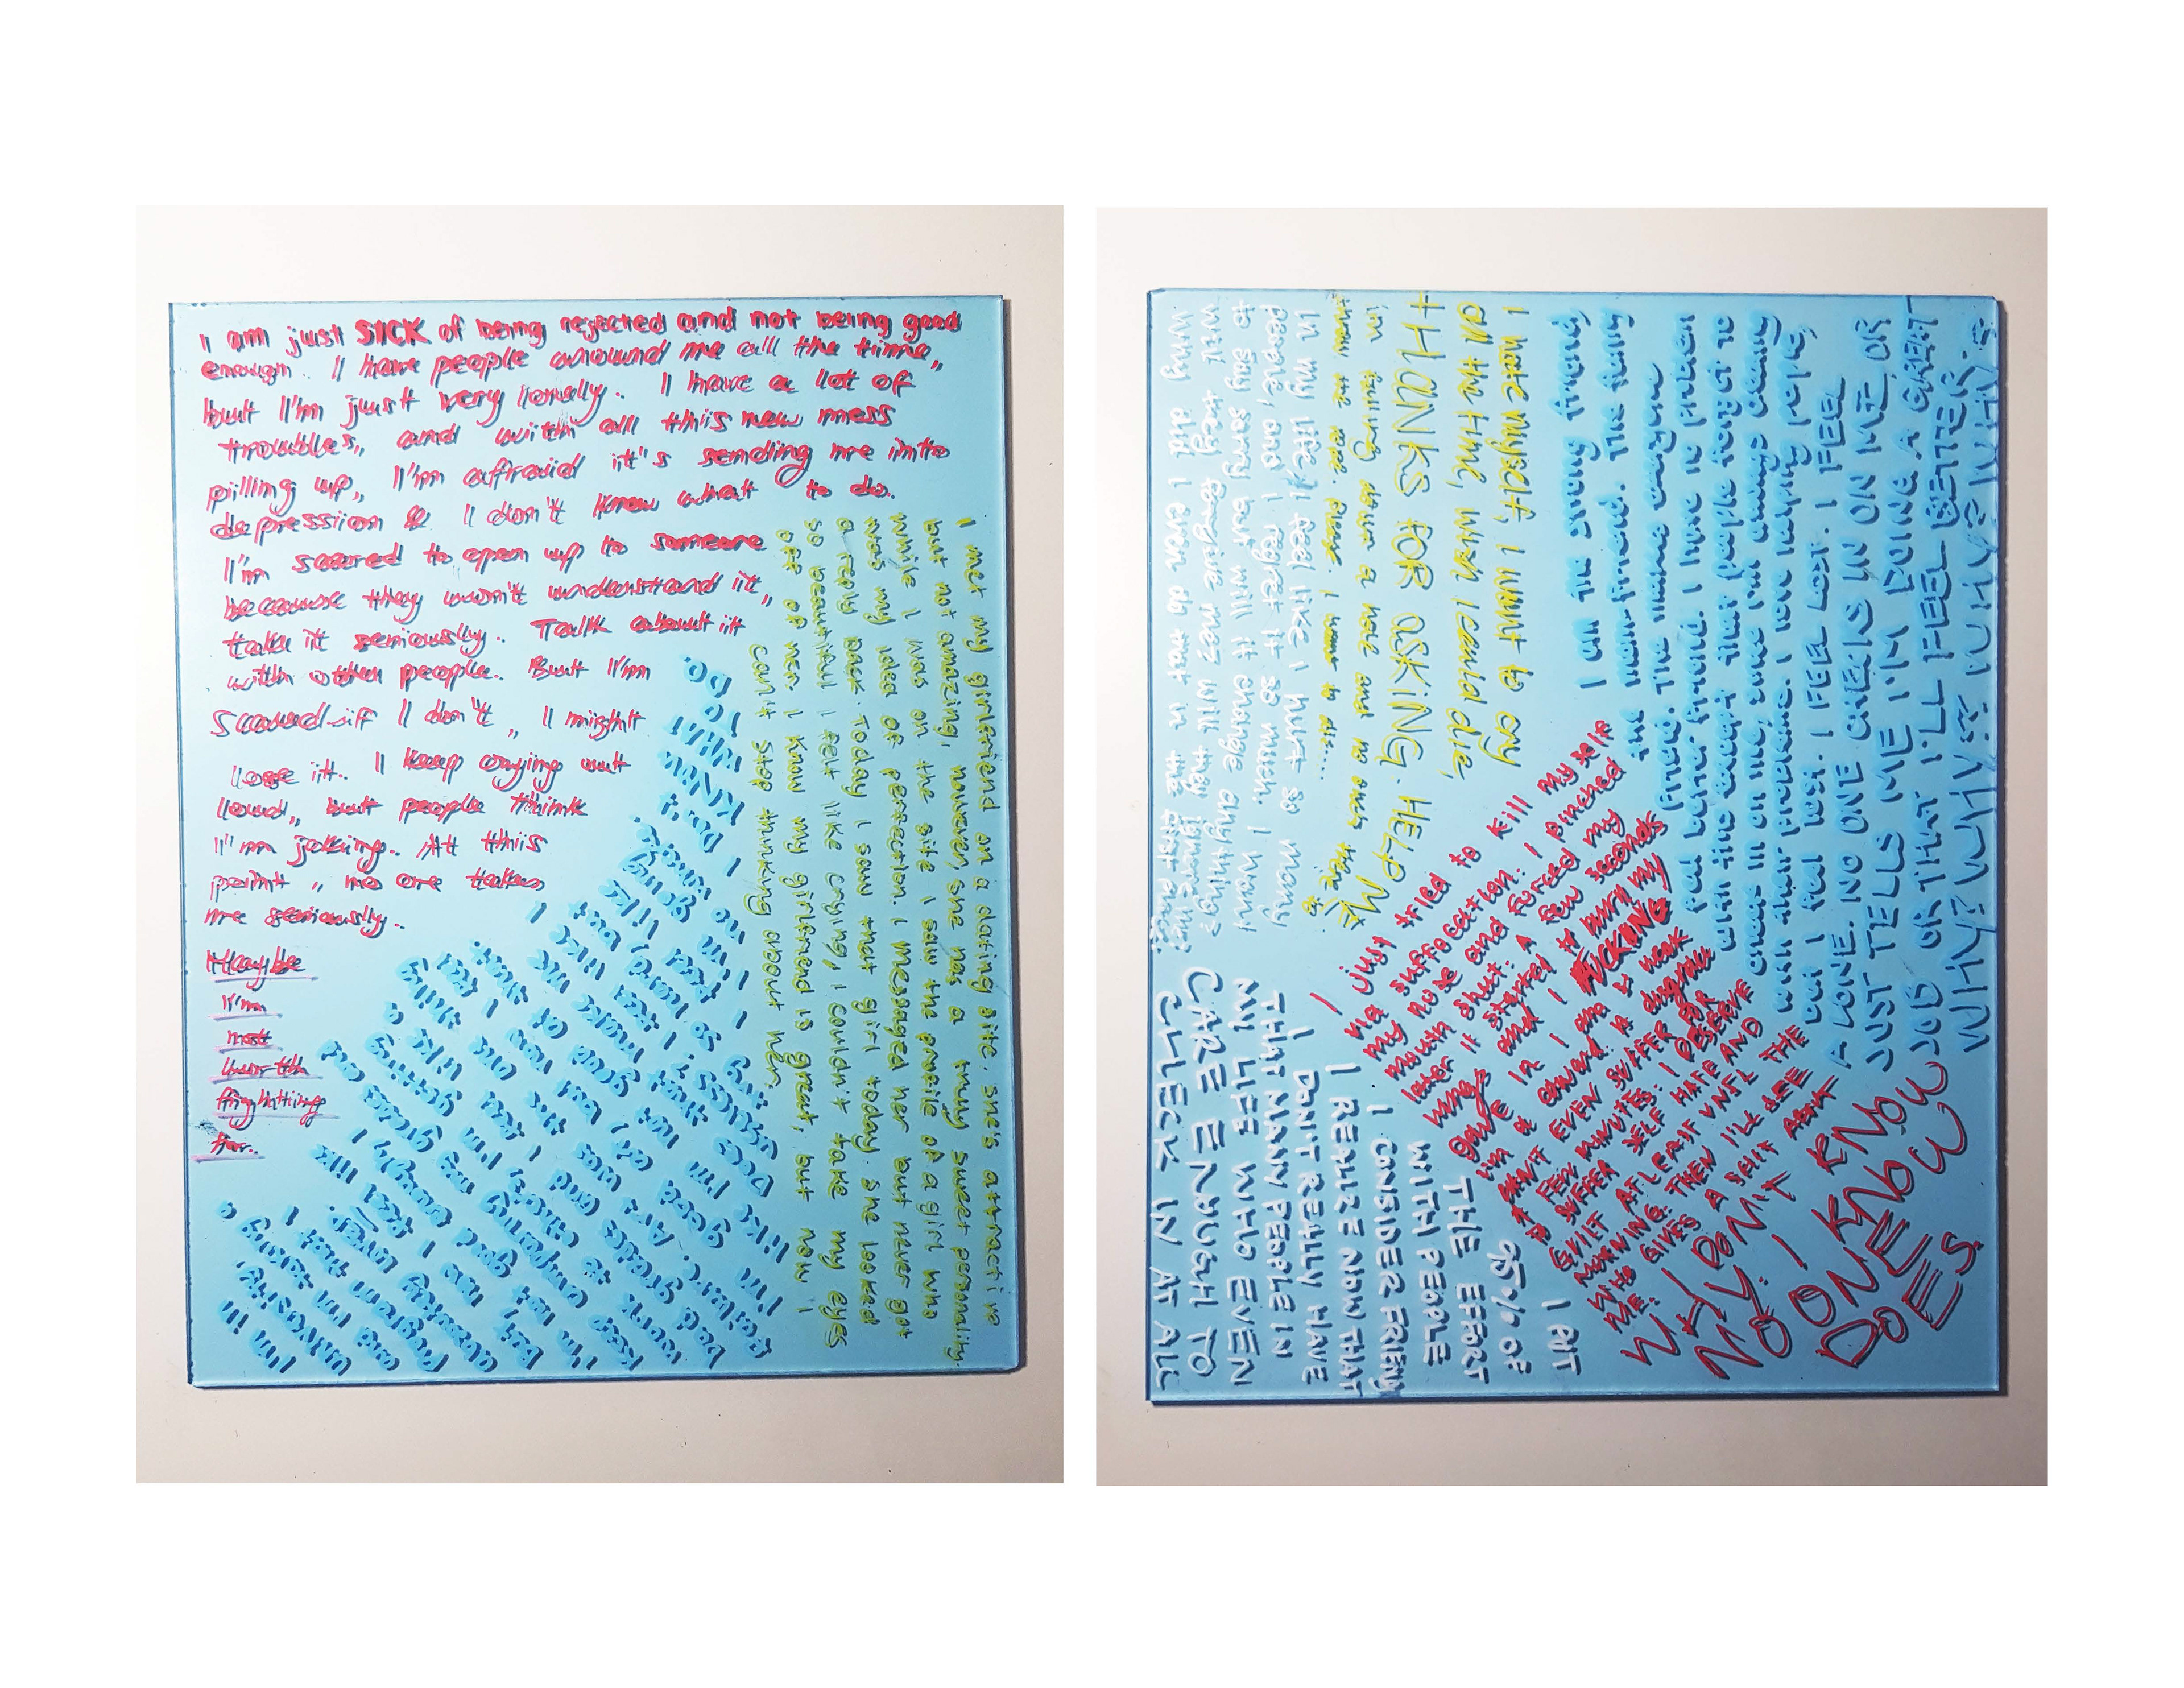 I am just SICK of being rejected and not being good
enough. I have people around me all the time,
but I'm just very lonely. I have a lot of
troubles, and with all this new mess
pilling up, I'm affraid it's sending me into
depression & I don't know what to do.
I'm scared to open up to someone
because they won't understand it,
take it seriously. Talk about it
with other people. But I'm
Scared if I don't, I might
lose it. I keep crying out
loud, but people think
I'm joking. At this
point, no one takes
me seriously.
Maybe
I'm
not
worth
fighting
for.
I met my girlfriend on a dating site. she's attractive
but not amazing, however, she has a truly sweet personality.
While I was on the site I saw the profile of a girl who
was my idea of perfection. I messaged her but never got
a reply back. Today I saw that girl today. she looked
so beautiful I felt like crying, I couldn't take my eyes
off of her. I know my girlfriend is great, but now I
can't stop thinking about her.
I'm in
university,
and I'm taking a
program that I
absolutely
But, now I feel like
I'm not good enough, I
keep comparing my grades and
work to others, I'm getting
bad grades and I feel like a
failure. Art was the one thing
I'm good at, but now I feel
like I'm not good at that.
Does that make me
useless? I feel like
I try so hard, but
I feel like
I'm no good
I
I Don't
KNOW
WHAT
TO DO.
Why did I even do that in the first place?
Will they forgive me? Will they ignore me?
to say sorry but will it change anything?
people, and I regret it so much. I want
in my life. I feel like I hurt so many
throw the rope. Please. I want to die....
in falling down a hole and no one's there to
tHaNKS FOR aSKiNG. HELP ME
all the time, wish I could die,
I hate myself, I want to cry
I am the strong friend,
the mom-friend. The funny
friend. The makes everyone
feel better friend. I have no problem
with this except that people forget to
check in on me, since I'm always dealing
with their problems. I love helping people,
but I feel lost. I FEEL LOST. I FEEL
ALONE. NO ONE CHECKS IN ON ME OR
JUST TELLS ME I'M DOING A GREAT
JOB OR THAT I'LL FEEL BETTER.
WHY? WHY? WHY? WHY?
I just tried to kill myself
via suffocation. I pinched
my nose and forced my
mouth shut. A few seconds
later it started to burn my
and I FUCKING
GAVE in. I am a weak
I'm a coward. A disgrace
I CAN'T EVEN SUFFER FOR
A FEW MINUTES. I DESERVE
TO SUFFER SELF HATE AND
GUILT AT LEAST UNTIL THE
MORNING. THEN I'LL SEE
WHO GIVES A SHIT ABOUT
ME.
WHY? I DON'T KNOW
NO. I KNOW
NO ONE
DOES
I PUT
95% OF
THE EFFORT
WITH PEOPLE
I CONSIDER FRIENDS
I REALIZE NOW THAT
I DON'T REALLY HAVE
THAT MANY PEOPLE IN
MY LIFE WHO EVEN
CARE ENOUGH TO
CHECK IN AT ALL